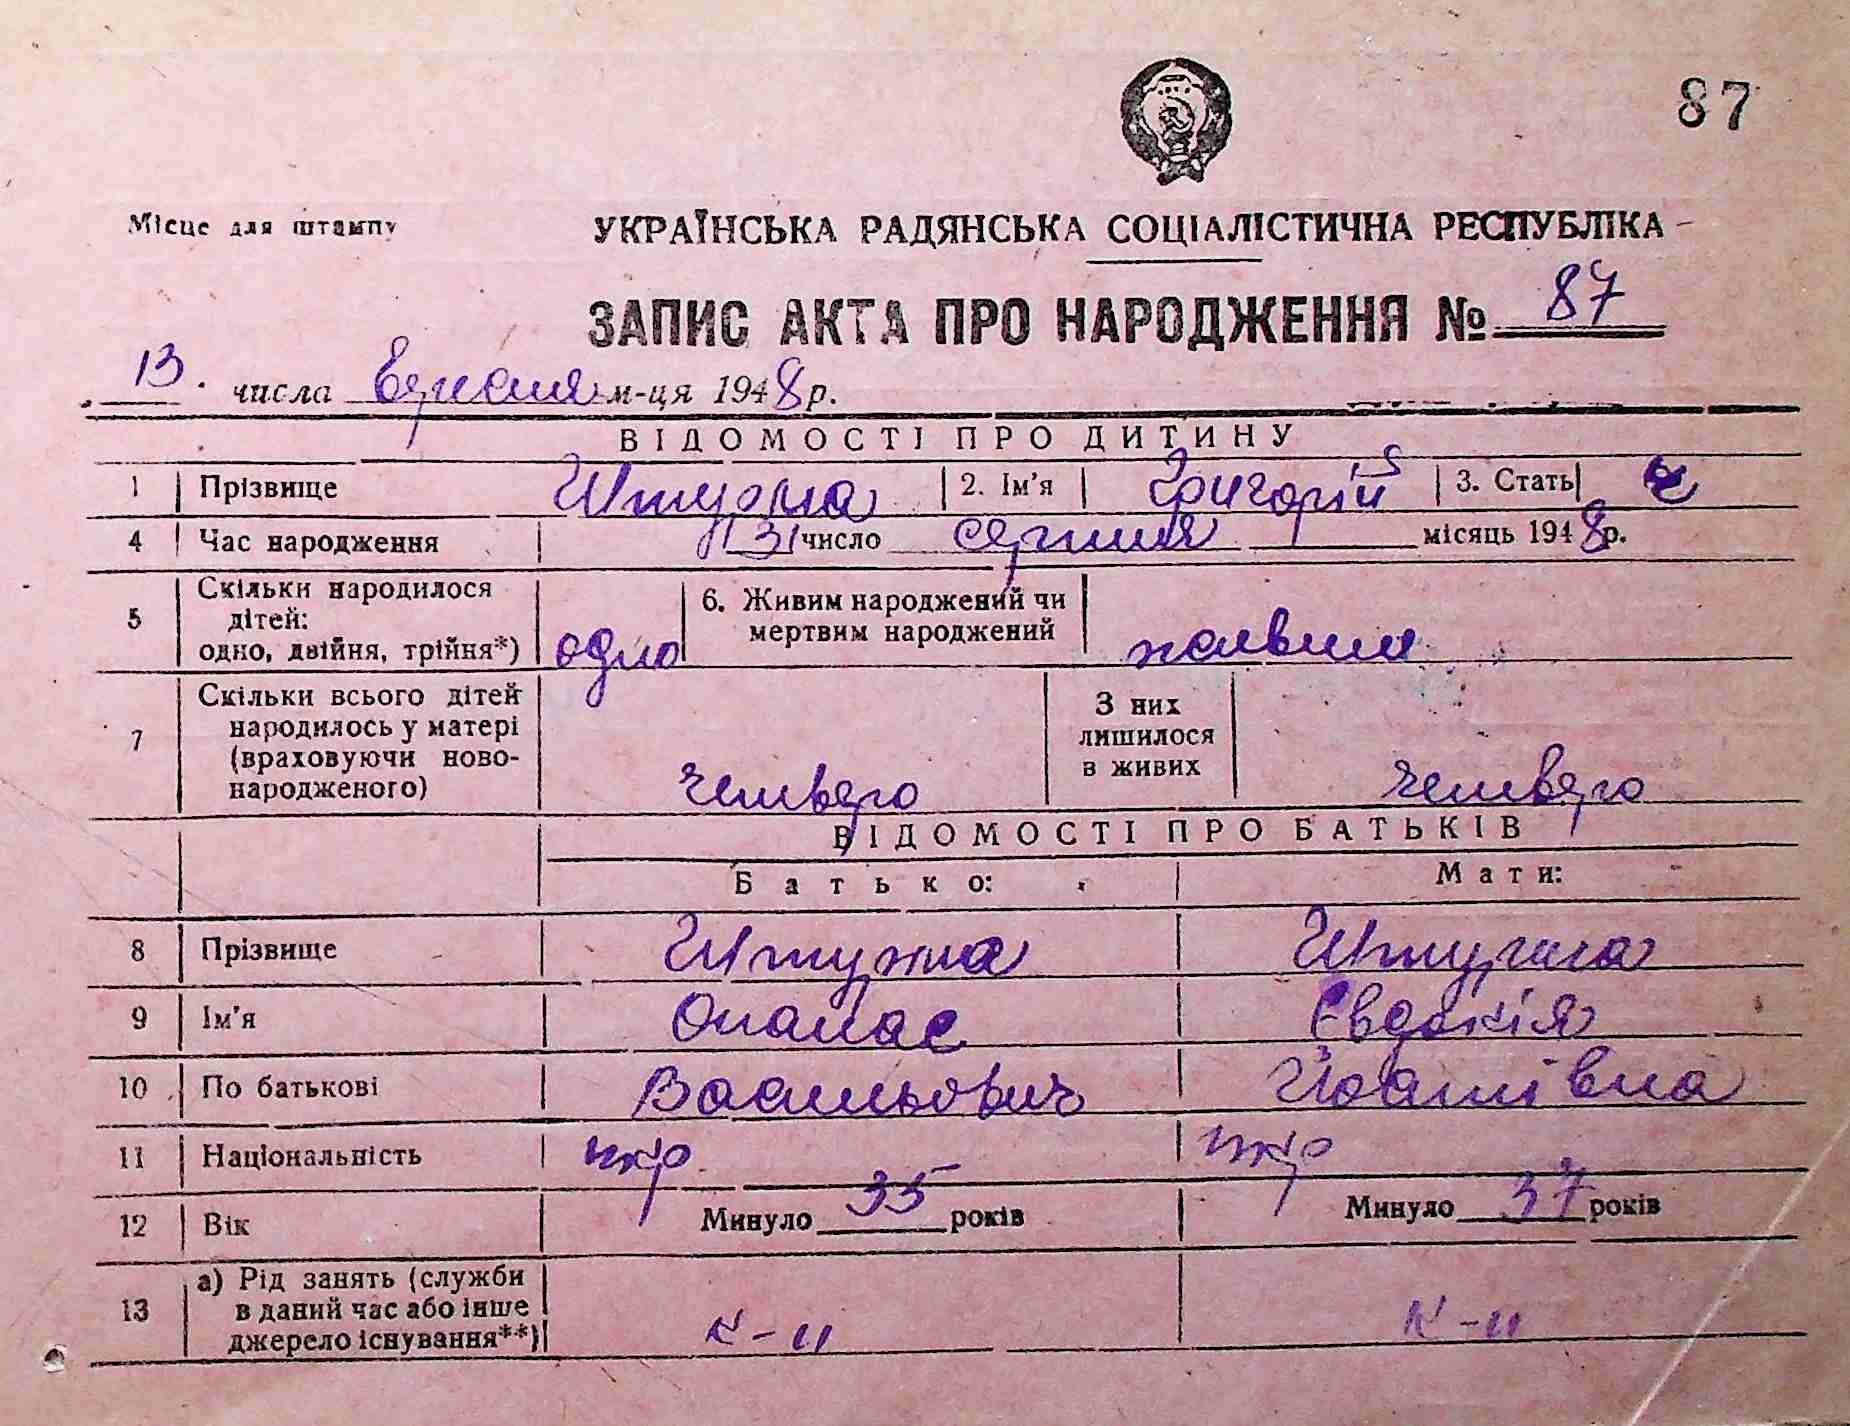 87
Місце для штампу
УКРАЇНСЬКА РАДЯНСЬКА СОЦІАЛІСТИЧНА РЕСПУБЛІКА
ЗАПИС АКТА ПРО НАРОДЖЕННЯ № 87
13. числа Вересня м-ця 1948 р.
ВІДОМОСТІ ПРО ДИТИНУ
1 Прізвище 2. Ім'я Григорій 3. Стать ч
4 Час народження 31 число серпня місяць 1948 р.
5 Скільки народилося дітей: одно, двійня, трійня*) одно 6. Живим народжений чи мертвим народжений живим
7 Скільки всього дітей народилось у матері (враховуючи ново-народженого) Четверо З них лишилося в живих Четверо
ВІДОМОСТІ ПРО БАТЬКІВ
Батько: Мати:
8 Прізвище
9 Ім'я Опанас Євдокія
10 По батькові Васильович
11 Національність укр укр
12 Вік Минуло 35 років Минуло 37 років
13 а) Рід занять (служби в даний час або інше джерело існування**) к-к к-к